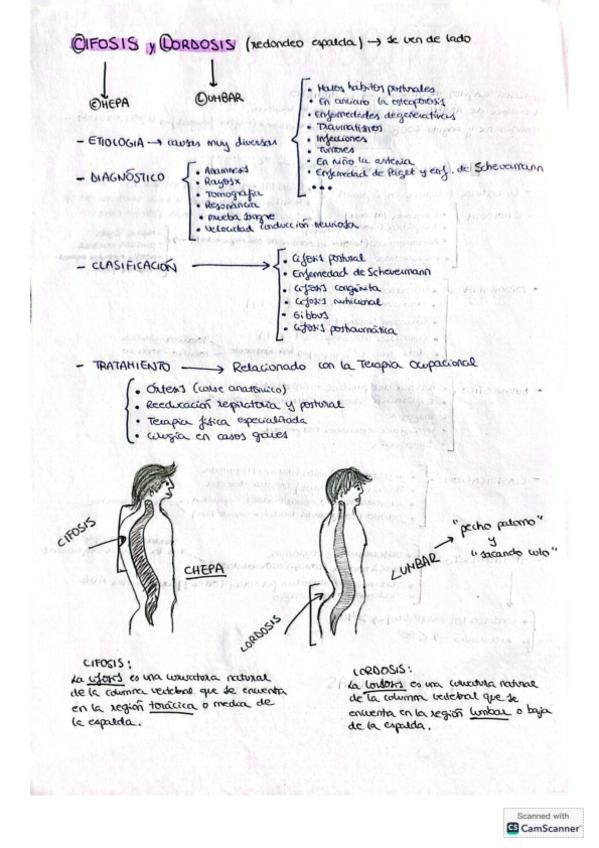 CIFOSIS y LORDOSIS (redondeo espalda) → se ven de lado
CHEPA
LUMBAR
- ETIOLOGIA → causas muy diversas
• Malos hábitos posturales
• En anciano la osteoporosis
• Enfermedades degenerativas
• Traumatismos
• Infecciones
• Tumores
• En niño la astenia
• Enfermedad de Paget y enf. de Scheuermann
• • •
- DIAGNÓSTICO
• Anamnesis
• Rayos x
• Tomografía
• Resonancia
• Prueba sangre
• Velocidad conducción nerviosa
- CLASIFICACIÓN
• Cifosis postural
• Enfermedad de Scheuermann
• Cifosis congénita
• Cifosis nutricional
• Gibbus
• Cifosis postraumática
- TRATAMIENTO → Relacionado con la Terapia Ocupacional
• Órtesis (corse anatómico)
• Reeducación respiratoria y postural
• Terapia física especialitzada
• Cirugía en casos graves
CIFOSIS
CHEPA
LORDOSIS
LUMBAR
"pecho palomo"
y
"sacando culo"
CIFOSIS:
La cifosis es una curvatura natural
de la columna vertebral que se encuentra
en la región torácica o media de
la espalda.
LORDOSIS:
La lordosis es una curvatura natural
de la columna vertebral que se
encuentra en la región lumbar o baja
de la espalda.
Scanned with
CS CamScanner